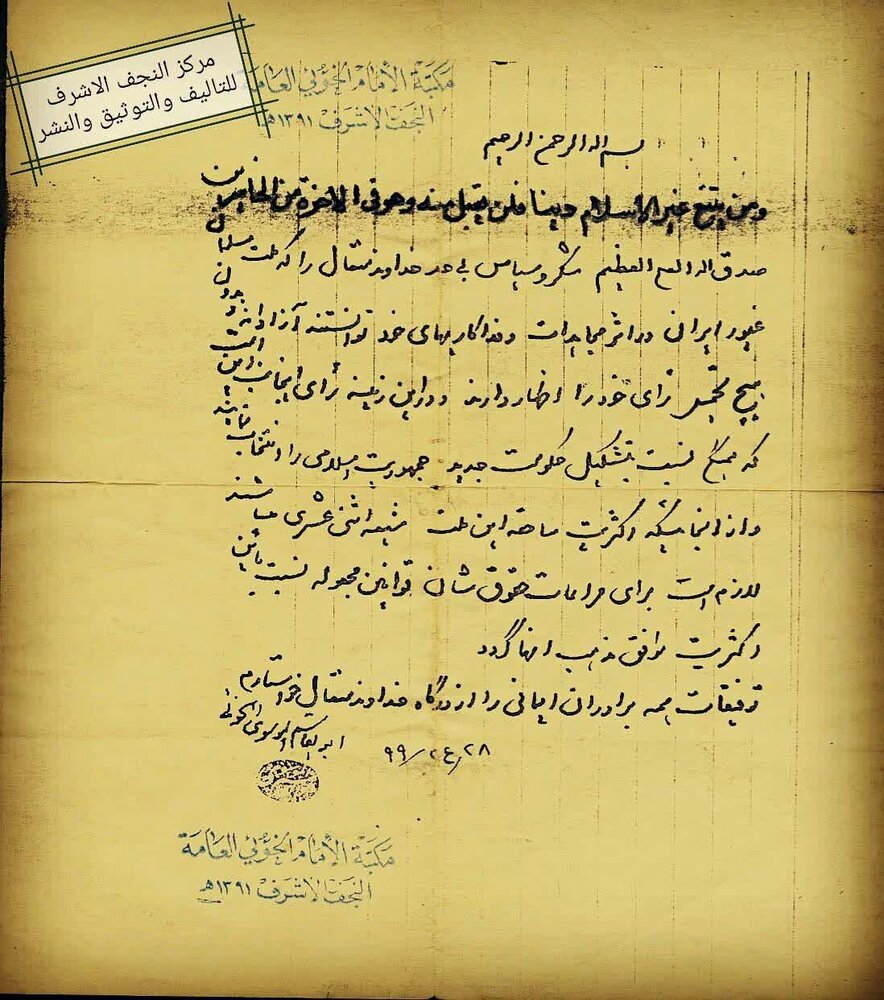 مركز النجف الاشرف
للتاليف والتوثيق والنشر
مكتبة الإمام الخوئي العامة
النجف الأشرف ١٣٩١هـ
بسم الله الرحمن الرحیم
ومن یبتغ غیر الاسلام دینا فلن یقبل منه وهو فی الاخرة من الخاسرین
صدق الله العلی العظیم شکر و سپاس بی حد خداوند متعال را که ملت مسلمان
غیور ایران در اثر مجاهدات و فداکاریهای خود توانستند آزادانه و بدون
هیچ تحمیل رأی خود را اظهار دارند و در این زمینه رأی اینجانب این است
که همگی نسبت بتشکیل حکومت جدید جمهوریت اسلامی را انتخاب نمایند
و از آنجائیکه اکثریت ساحقه این ملت شیعه اثنی عشری میباشند
لازم است برای مراعات حقوق شان قوانین مجعوله نسبت باین
اکثریت موافق مذهب آنها گردد
توفیقات همه برادران ایمانی را از درگاه خداوند متعال خواستارم
ابوالقاسم الموسوی الخوئی
٢٨/ع٢/٩٩
مكتبة الإمام الخوئي العامة
النجف الأشرف ١٣٩١هـ